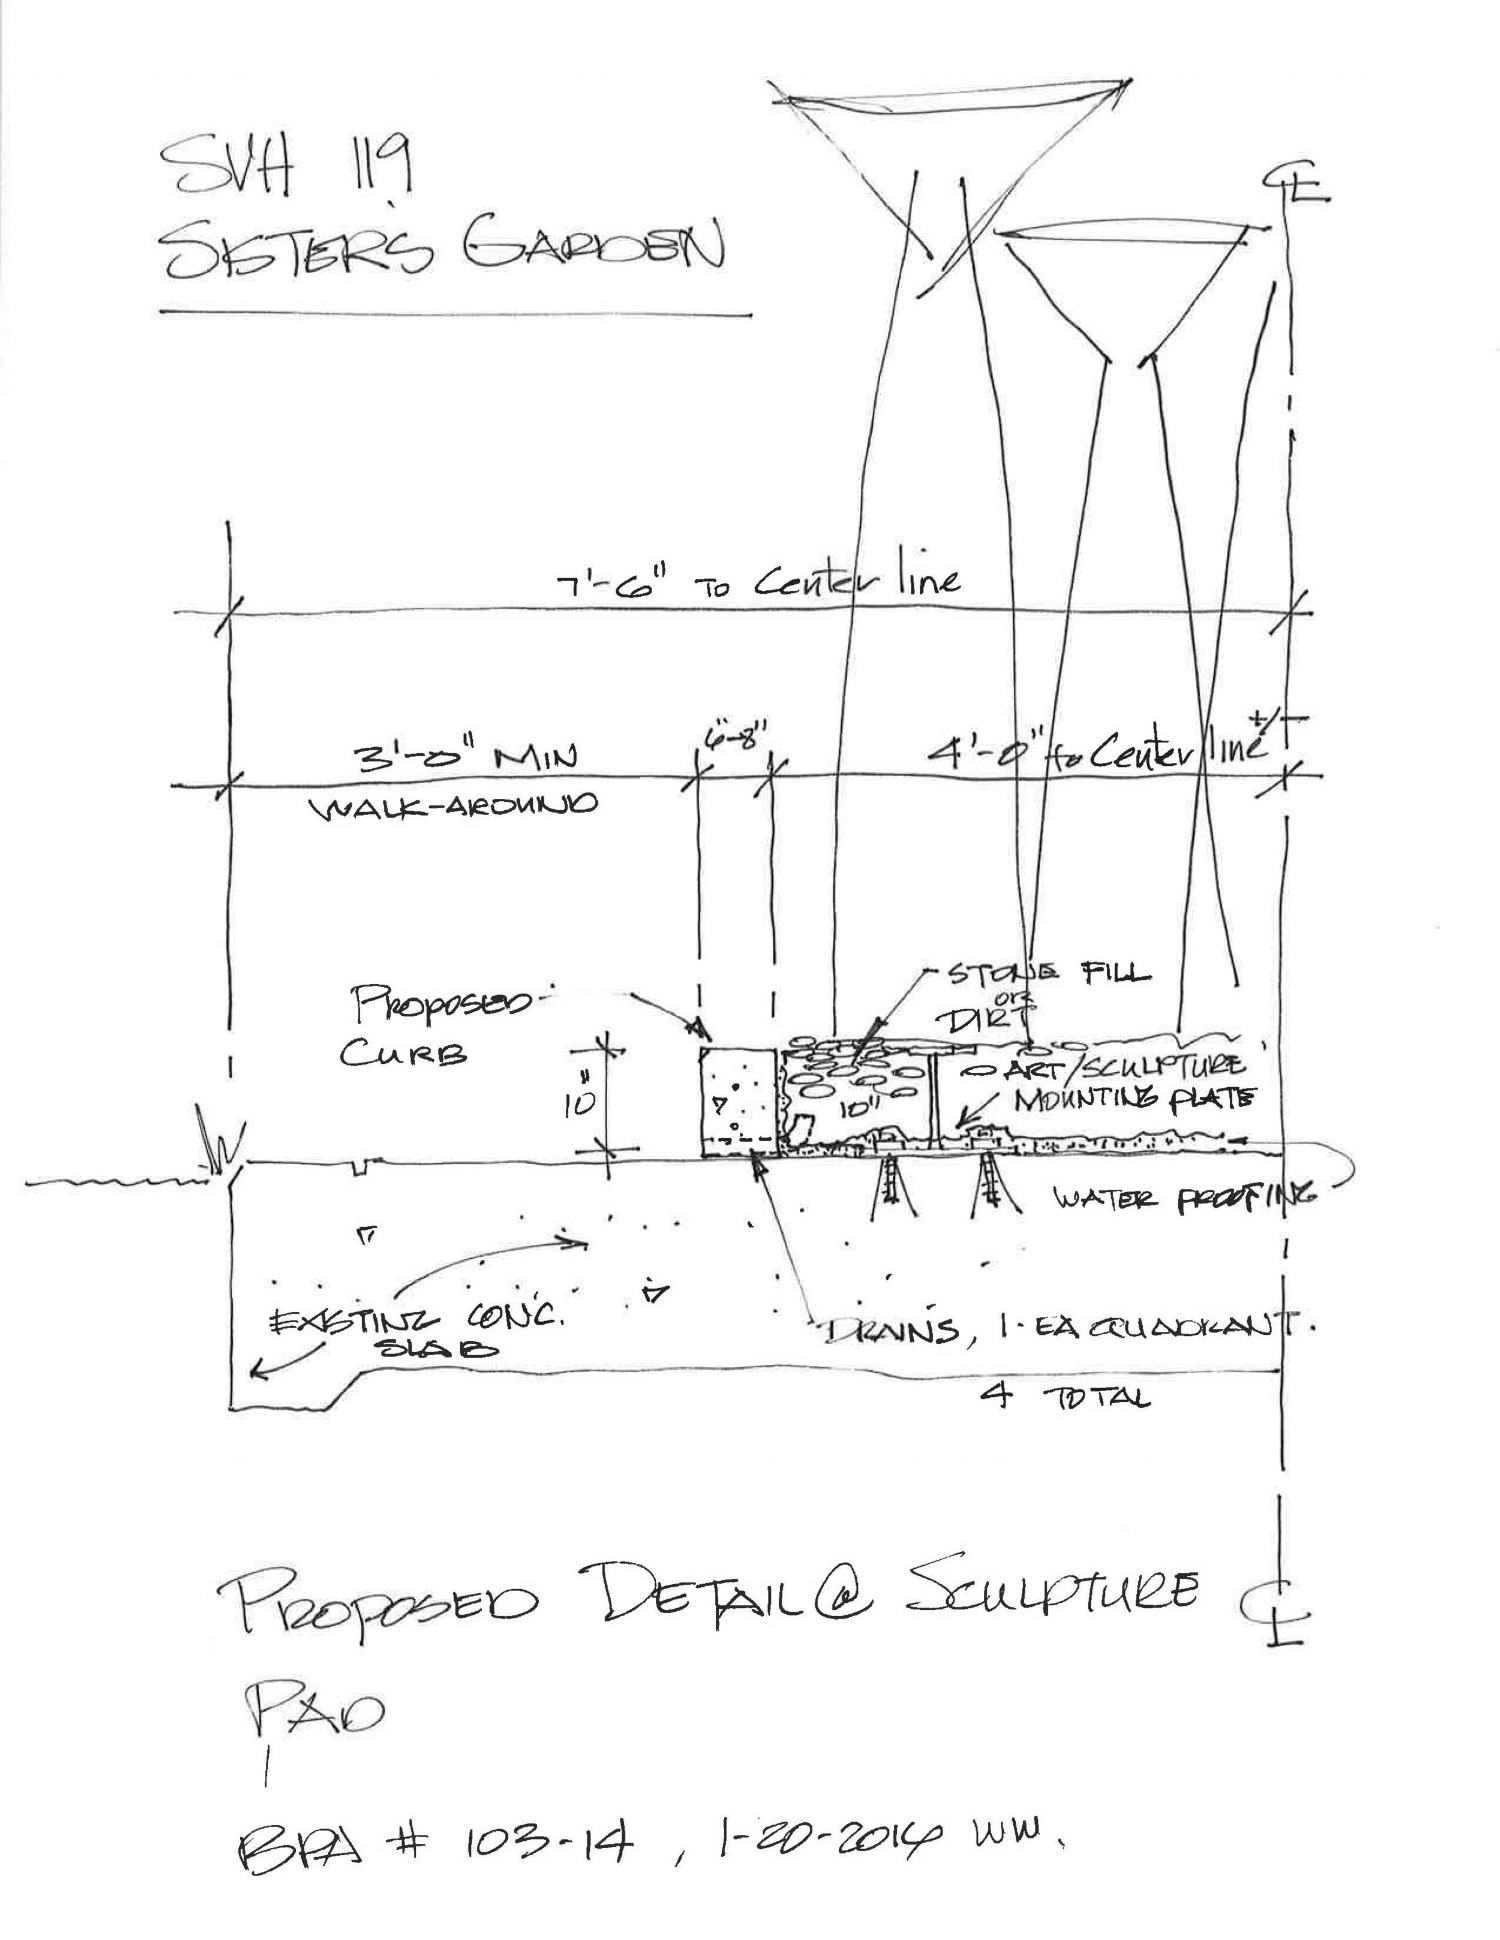 SVH 119
SISTER'S GARDEN
CL
7'-6" TO Center line
3'-0" MIN
WALK-AROUND
6"-8"
4'-0" to Center line +/-
STONE FILL
OR
DIRT
PROPOSED
CURB
10"
10"
ART/SCULPTURE
MOUNTING PLATE
WATER PROOFING
EXISTING CONC.
SLAB
DRAINS, 1-EA QUADRANT.
4 TOTAL
PROPOSED DETAIL @ SCULPTURE
CL
PAD
BPA # 103-14, 1-20-2014 WW.